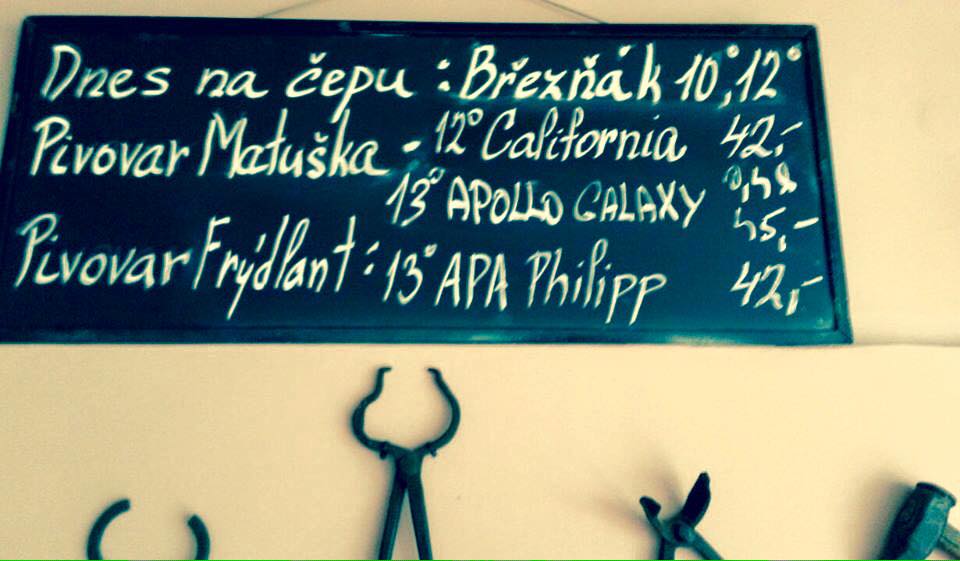 Dnes na čepu : Březňák 10°, 12°
Pivovar Matuška - 12° California 42,-
13° APOLLO GALAXY 0,4l
45,-
Pivovar Frýdlant : 13° APA Philipp 42,-